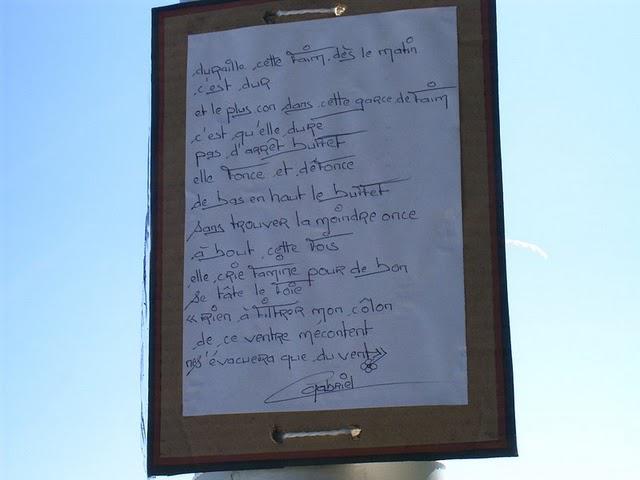 duraille cette faim dès le matin
c'est dur
et le plus con dans cette garce de faim
c'est qu'elle dure
pas d'arrêt buffet
elle fonce et défonce
de bas en haut le buffet
sans trouver la moindre once
à bout cette fois
elle crie famine pour de bon
se tâte le foie
« Rien à filtrer mon côlon
de ce ventre mécontent
ne s'évacuera que du vent »
Gabriel